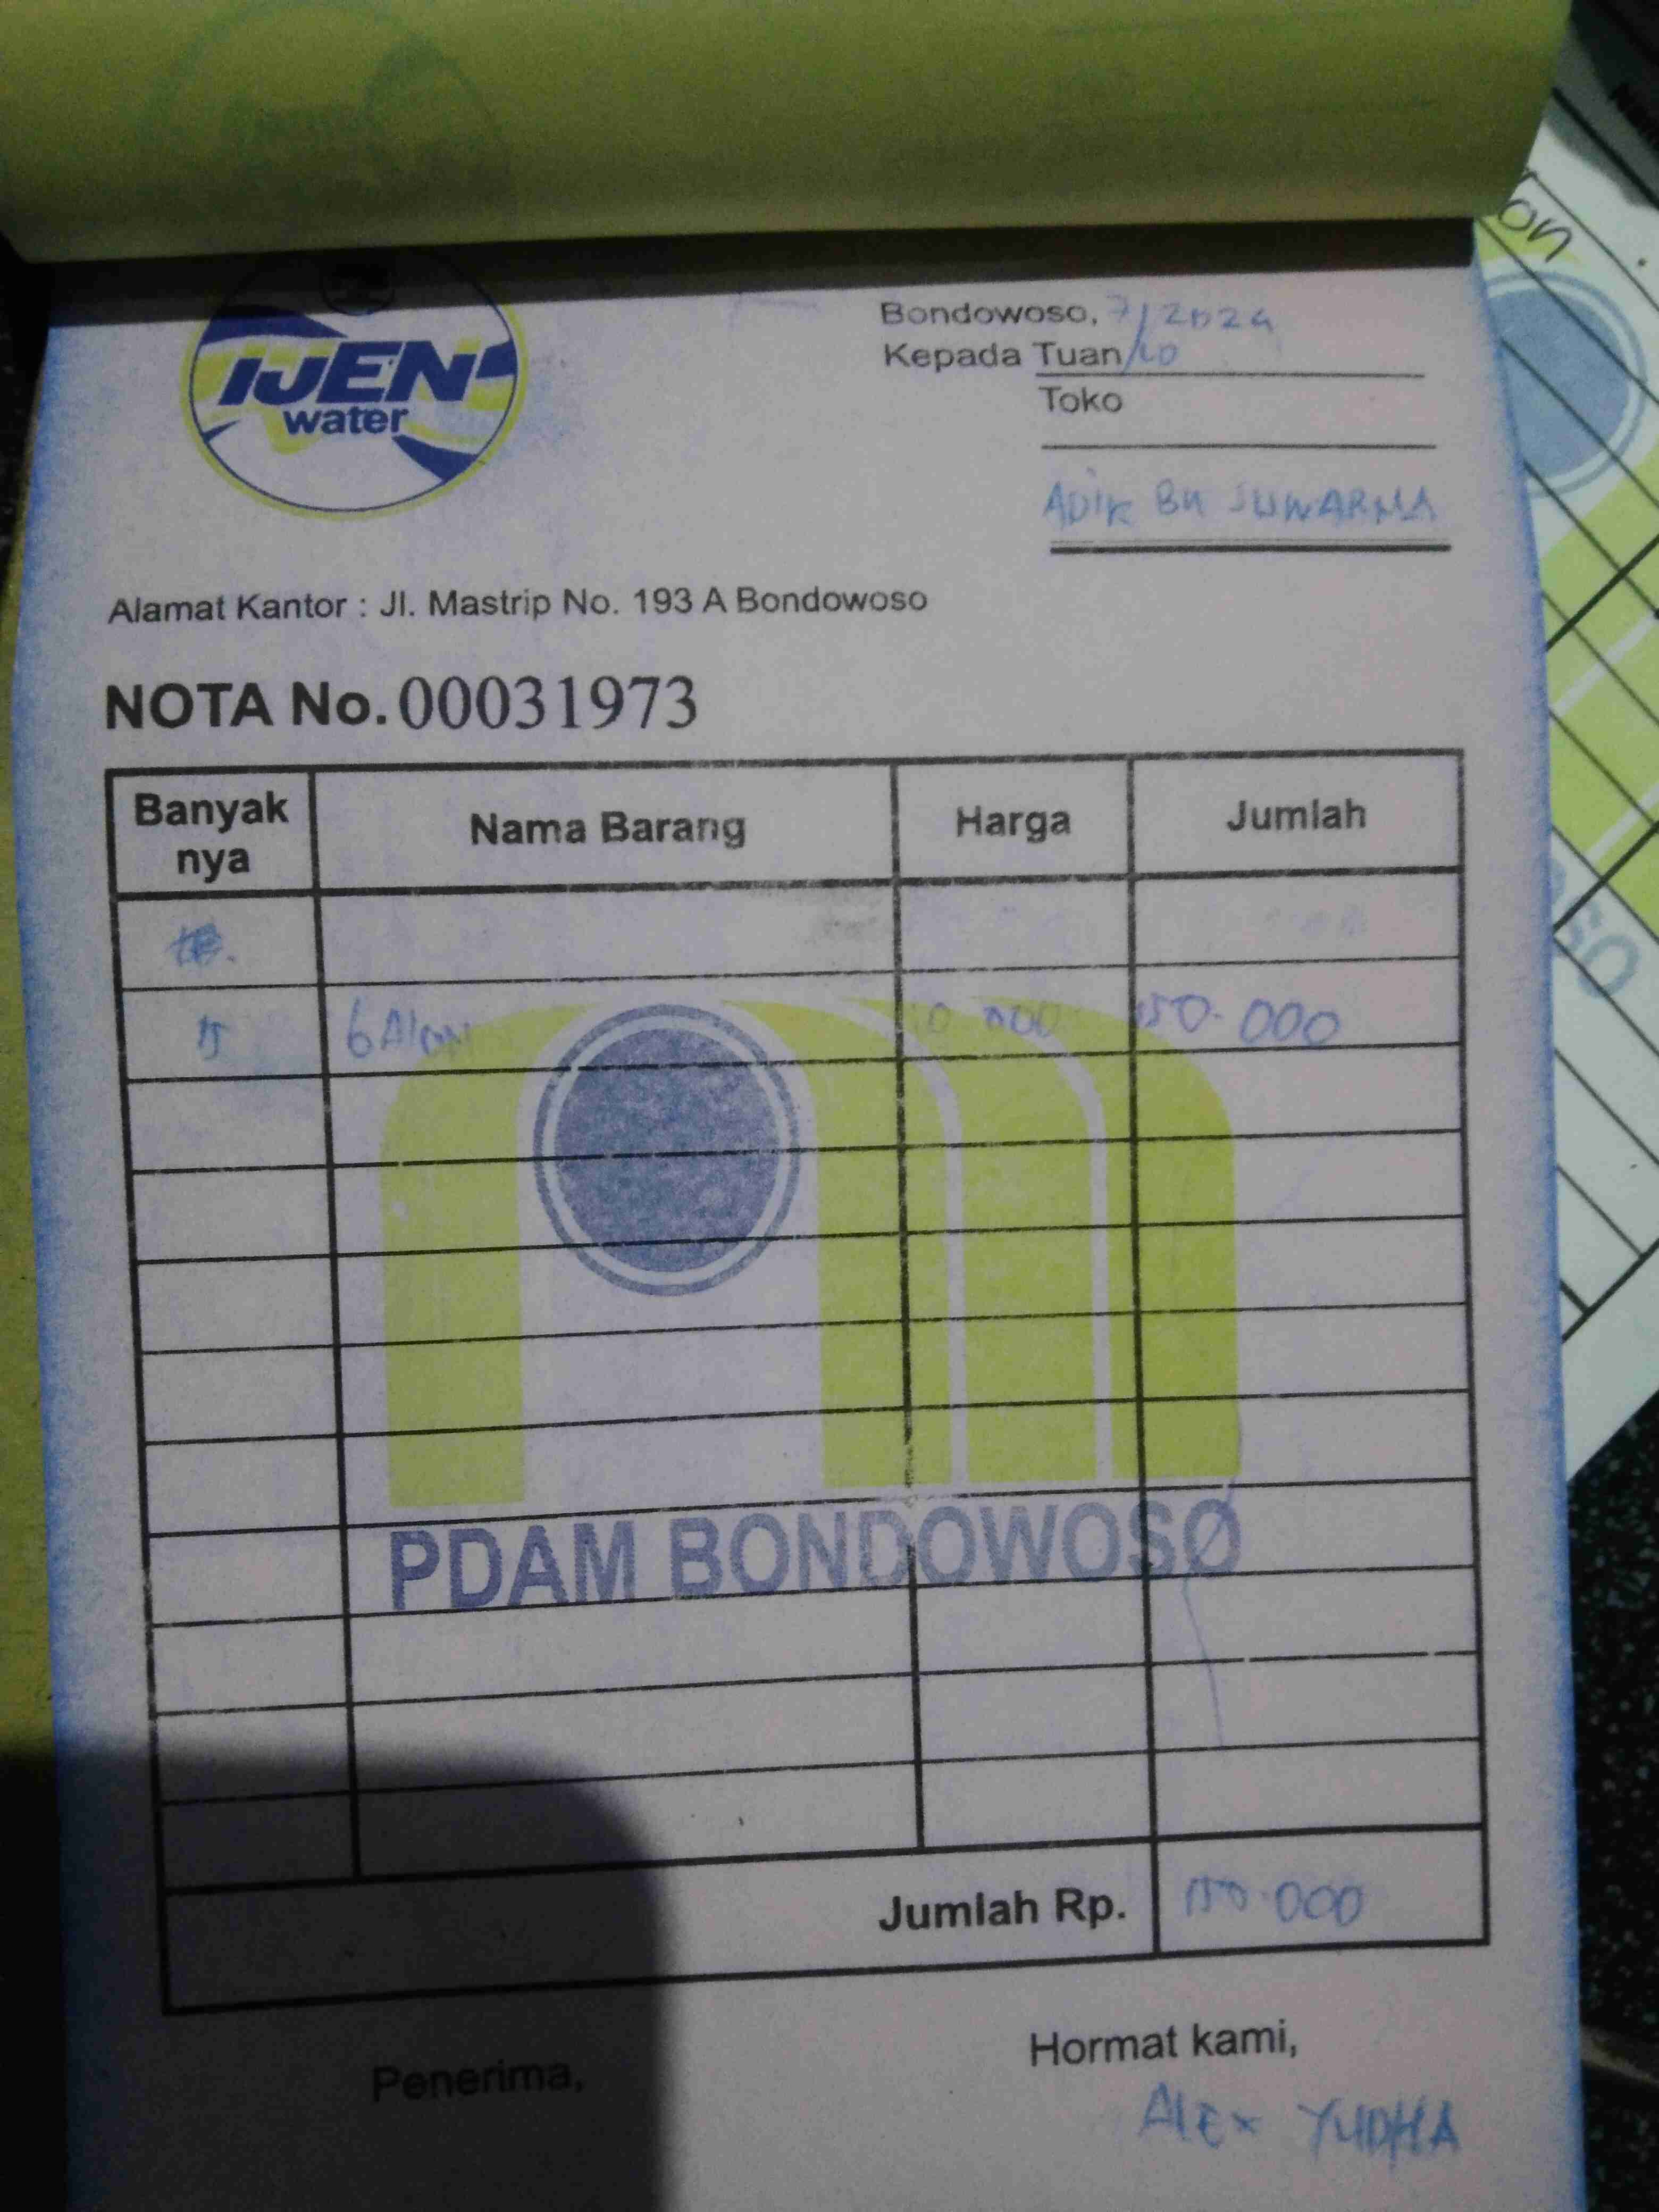 IJEN
water
Bondowoso, 7/2024
Kepada Tuan /10
Toko
ADIK BU JUWARNA
Alamat Kantor : Jl. Mastrip No. 193 A Bondowoso
NOTA No. 00031973
Banyak nya Nama Barang Harga Jumlah
15 GAlon 10 000 150.000
PDAM BONDOWOSO
Jumlah Rp. 150.000
Penerima, Hormat kami,
AlEx YUDHA